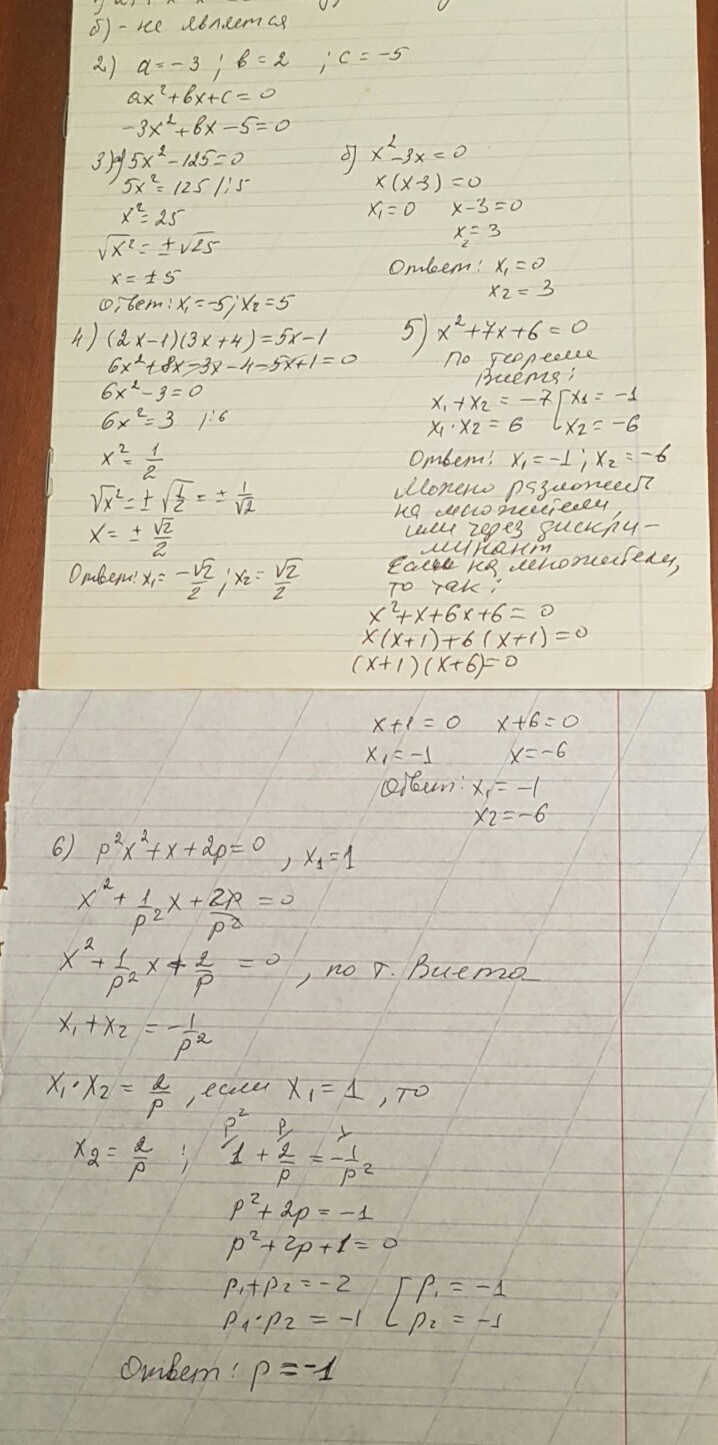 б) - не является
2) a = -3 ; b = 2 ; c = -5
ax² + bx + c = 0
-3x² + bx - 5 = 0
3) a) 5x² - 125 = 0
5x² = 125 /:5
x² = 25
√x² = ±√25
x = ±5
Ответ: x₁ = -5; x₂ = 5
б) x² - 3x = 0
x(x-3) = 0
x₁ = 0 x-3 = 0
x₂ = 3
Ответ: x₁ = 0
x₂ = 3
4) (2x-1)(3x+4) = 5x-1
6x² + 8x - 3x - 4 - 5x + 1 = 0
6x² - 3 = 0
6x² = 3 /:6
x² = 1/2
√x² = ±√1/2 = ± 1/√2
x = ± √2/2
Ответ: x₁ = -√2/2 ; x₂ = √2/2
5) x² + 7x + 6 = 0
По теореме
Виета:
x₁ + x₂ = -7 [ x₁ = -1
x₁ · x₂ = 6 [ x₂ = -6
Ответ: x₁ = -1 ; x₂ = -6
Можно разложить
на множители,
или через дискри-
минант
Если на множители,
то так:
x² + x + 6x + 6 = 0
x(x+1) + 6(x+1) = 0
(x+1)(x+6) = 0
x+1 = 0 x+6 = 0
x₁ = -1 x = -6
Ответ: x₁ = -1
x₂ = -6
6) p²x² + x + 2p = 0 , x₁ = 1
x² + 1/p² x + 2p/p² = 0
x² + 1/p² x + 2/p = 0 , по т. Виета
x₁ + x₂ = -1/p²
x₁ · x₂ = 2/p , если x₁ = 1 , то
x₂ = 2/p ; 1 + 2/p = -1/p²
p² + 2p = -1
p² + 2p + 1 = 0
p₁ + p₂ = -2 [ p₁ = -1
p₁ · p₂ = -1 [ p₂ = -1
Ответ: p = -1